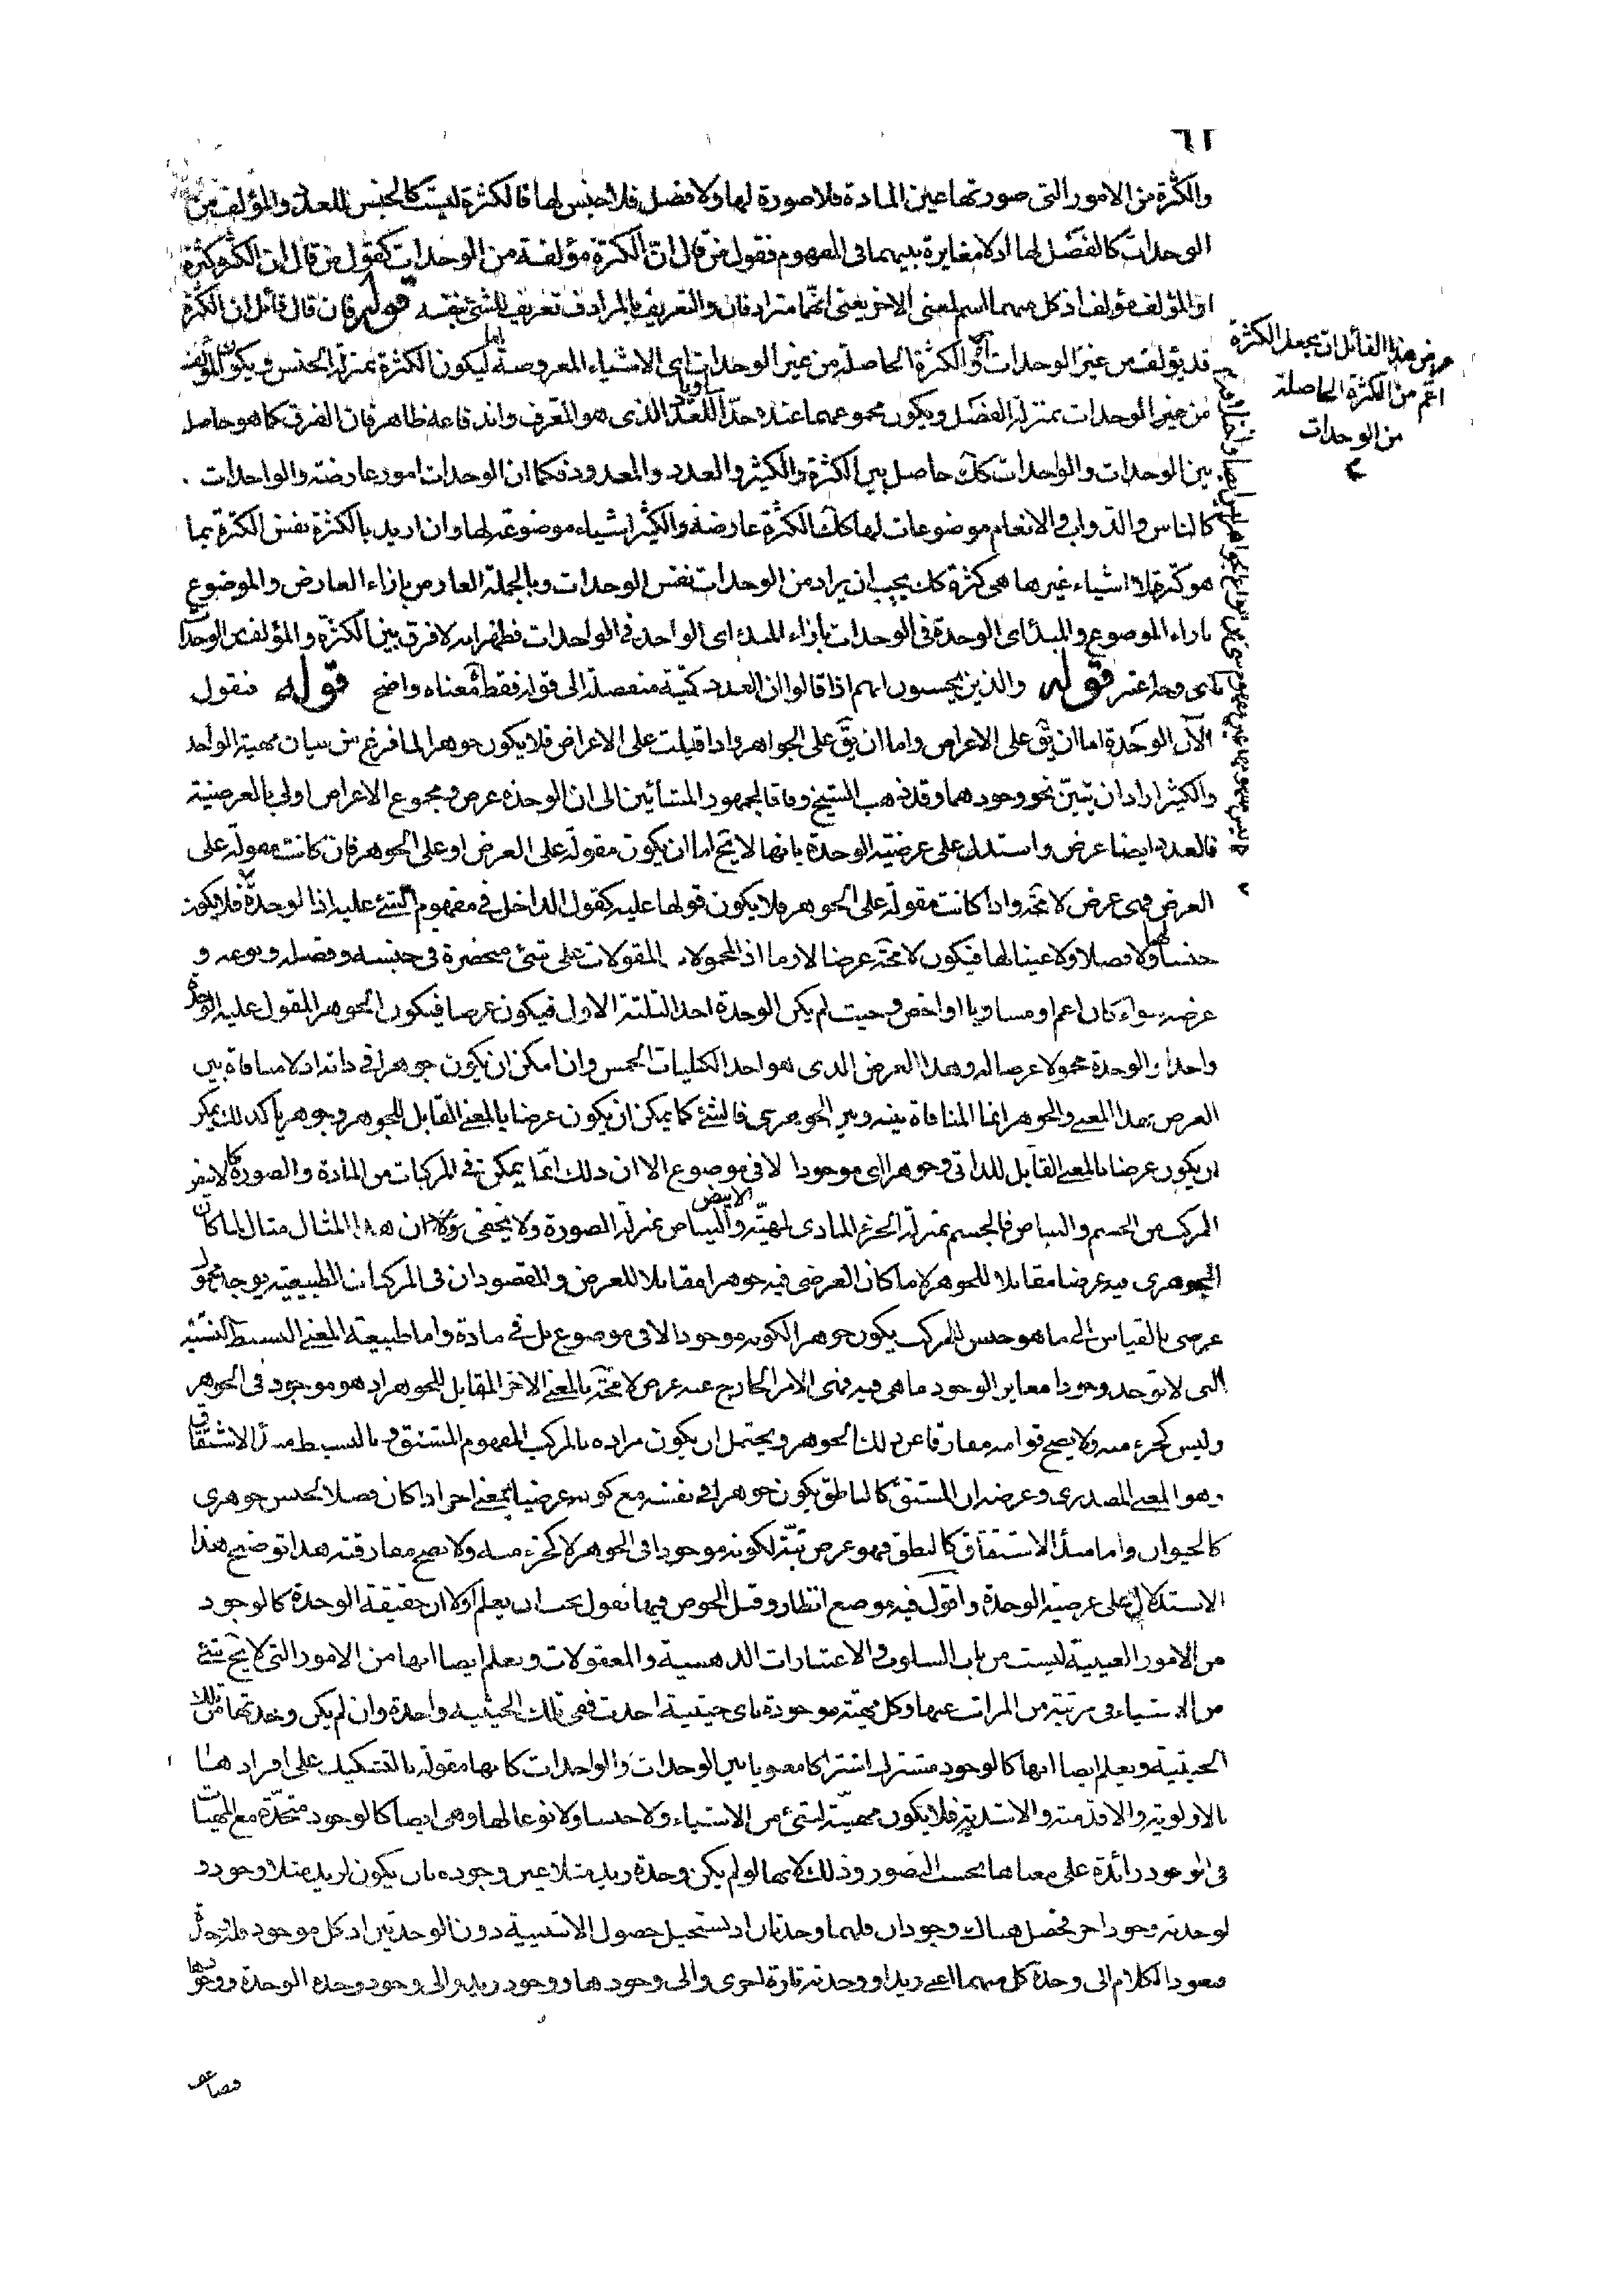 ٦٢
والكثرة من الامور التى صورتها عين المادة فلا صورة لها ولا فصل فلا جنس لها فالكثرة ليست كالجنس للعدد والمؤلف من
الوحدات كالفصل لها اذ لا مغايرة بينهما فى المفهوم فقول من قال ان الكثرة مؤلفة من الوحدات كقول من قال ان الكثرة كثرة
او المؤلف مؤلف اذ كل منهما اسم لمعنى الاخر يعنى انهما مترادفان والتعريف بالمرادف تعريف للشئ بنفسه قوله فان قال قائل ان الكثرة
قد يؤلف من غير الوحدات الكثرة الحاصلة من غير الوحدات اى الاشياء المعروضة لها ليكون الكثرة بمنزلة الجنس ويكون المؤلف
من غير الوحدات بمنزلة الفصل ويكون مجموعهما عنده حدا للعدد الذى هو المعرف واندفاعه ظاهر فان الفرق كما هو حاصل
بين الوحدات والواحدات كك حاصل بين الكثرة والكثير والعدد والمعدود فكما ان الوحدات امور عارضة والواحدات
كالناس والدواب والانعام موضوعات لها كك الكثرة عارضة والكثير اشياء موضوعة لها وان اريد بالكثرة نفس الكثرة بما
هو كثرة لا اشياء غيرها هى كثرة كك يجب ان يراد من الوحدات نفس الوحدات وبالجملة العارض بازاء العارض والموضوع
بازاء الموضوع والمبدأ اى الوحدة فى الوحدات بازاء المبدأ اى الواحد فى الواحدات فظهر انه لا فرق بين الكثرة والمؤلف من الوحدات
قوله والذين يحسبون انهم اذا قالوا ان العدد كمية منفصلة الى قوله فقط معناه واضح قوله فنقول
الآن الوحدة اما ان يق على الاعراض واما ان يق على الجواهر واذا قيلت على الاعراض فلا يكون جوهرا لما فرغ من بيان مهية الواحد
والكثير اراد ان يبين نحو وجودهما وقد ذهب الشيخ وفاقا لجمهور المشائين الى ان الوحدة عرض ومجموع الاعراض اولى بالعرضية
فالعدد ايضا عرض واستدل على عرضية الوحدة بانها لا يخ اما ان يكون مقولة على العرض او على الجوهر فان كانت مقولة على
العرض فهى عرض لا محة واذا كانت مقولة على الجوهر فلا يكون قولها عليه كقول الداخل فى مفهوم الشئ عليه اذ الوحدة فلا يكون
جنسا لها ولا فصلا ولا عينا لها فيكون لا محة عرضا لازما اذ المحمولات المقولات على شئ منحصرة فى جنسه وفصله ونوعه و
عرضه سواء كان اعم او مساويا او اخص وحيث لم يكن الوحدة احد الثلثة الاول فيكون عرضا فيكون الجوهر المقول عليه الوحدة
واحدا والوحدة محمولا عرضا له وهذا العرض الذى هو احد الكليات الخمس وان امكن ان يكون جوهرا فى ذاته اذ لا منافاة بين
العرض بهذا المعنى والجوهر انما المنافاة بينه وبين الجوهرى فالشئ كما يمكن ان يكون عرضا بالمعنى القابل للجوهر وجوهريا كذلك يمكن
ان يكون عرضا بالمعنى القابل للذاتى وجوهرا اى موجودا لا فى موضوع الا ان ذلك انما يمكن فى المركبات من المادة والصورة كالابيض
المركب من الجسم والبياض فالجسم بمنزلة الجزء المادى لمهية الابيض والبياض بمنزلة الصورة ولا يخفى ان هذا المثال مثال لما كان
الجوهرى فيه عرضا مقابلا للجوهر لا ما كان العرضى فيه جوهرا مقابلا للعرض والمقصود ان فى المركبات الطبيعية يوجد محمول
عرضى بالقياس الى ما هو جنس للمركب يكون جوهرا لكونه موجودا لا فى موضوع بل فى مادة واما طبيعة المعنى البسيط
التى لا توجد وجودا مغاير الوجود ما هى فيه فهى الامر الخارج عنه عرض لا محة بالمعنى الاخر المقابل للجوهر اذ هو موجود فى الجوهر
وليس كجزء منه ولا يصح قوامه مفارقا عن ذلك الجوهر ويحتمل ان يكون مراده بالمركب المفهوم المشتق وبالبسيط مبدأ الاشتقاق
وهو المعنى المصدرى وغرضه ان المشتق كالناطق يكون جوهرا فى نفسه مع كونه عرضيا بمعنى اخر اذا كان فصلا لجنس جوهرى
كالحيوان واما مبدأ الاشتقاق كالنطق فهو عرض لكونه موجودا فى الجوهر لا كجزء منه ولا يصح مفارقته هذا توضيح هذا
الاستدلال على عرضية الوحدة واقول فيه موضع انظار وقبل الخوض فيها نقول يجب ان يعلم اولا ان حقيقة الوحدة كالوجود
من الامور العينية ليست من باب السلوب والاعتبارات الذهنية والمعقولات ويعلم ايضا انها من الامور التى لا يخ شئ
من الاشياء فى مرتبة من المراتب عنها وكل مهية موجودة باى حيثية اخذت فهى بتلك الحيثية واحدة وان لم يكن وحدتها تلك
الحيثية ويعلم ايضا انها كالوجود مشترك اشتراكا معنويا بين الوحدات والواحدات كانها مقولة بالتشكيك على افرادها
بالاولوية والاقدمية والاشدية فلا يكون مهية لشئ من الاشياء ولا جنسا ولا نوعا لها وهى ايضا كالوجود متحدة مع المهيات
فى الوجود زائدة على معناها بحسب التصور وذلك لانها لو لم يكن وحدة زيد مثلا عين وجوده بان يكون لزيد مثلا وجود و
لوحدته وجود اخر فحصل هناك وجودان فلهما وحدتان اذ يستحيل حصول الاثنينية دون الوحدتين اذ كل موجود فله وحدة
فنعود الكلام الى وحدة كل منهما اعنى زيدا ووحدته تارة اخرى والى وجودها ووجود زيد والى وجود وحدة الوحدة ووجودها
غرض هذا القائل ان يجعل الكثرة
اعم من الكثرة الحاصلة
من الوحدات